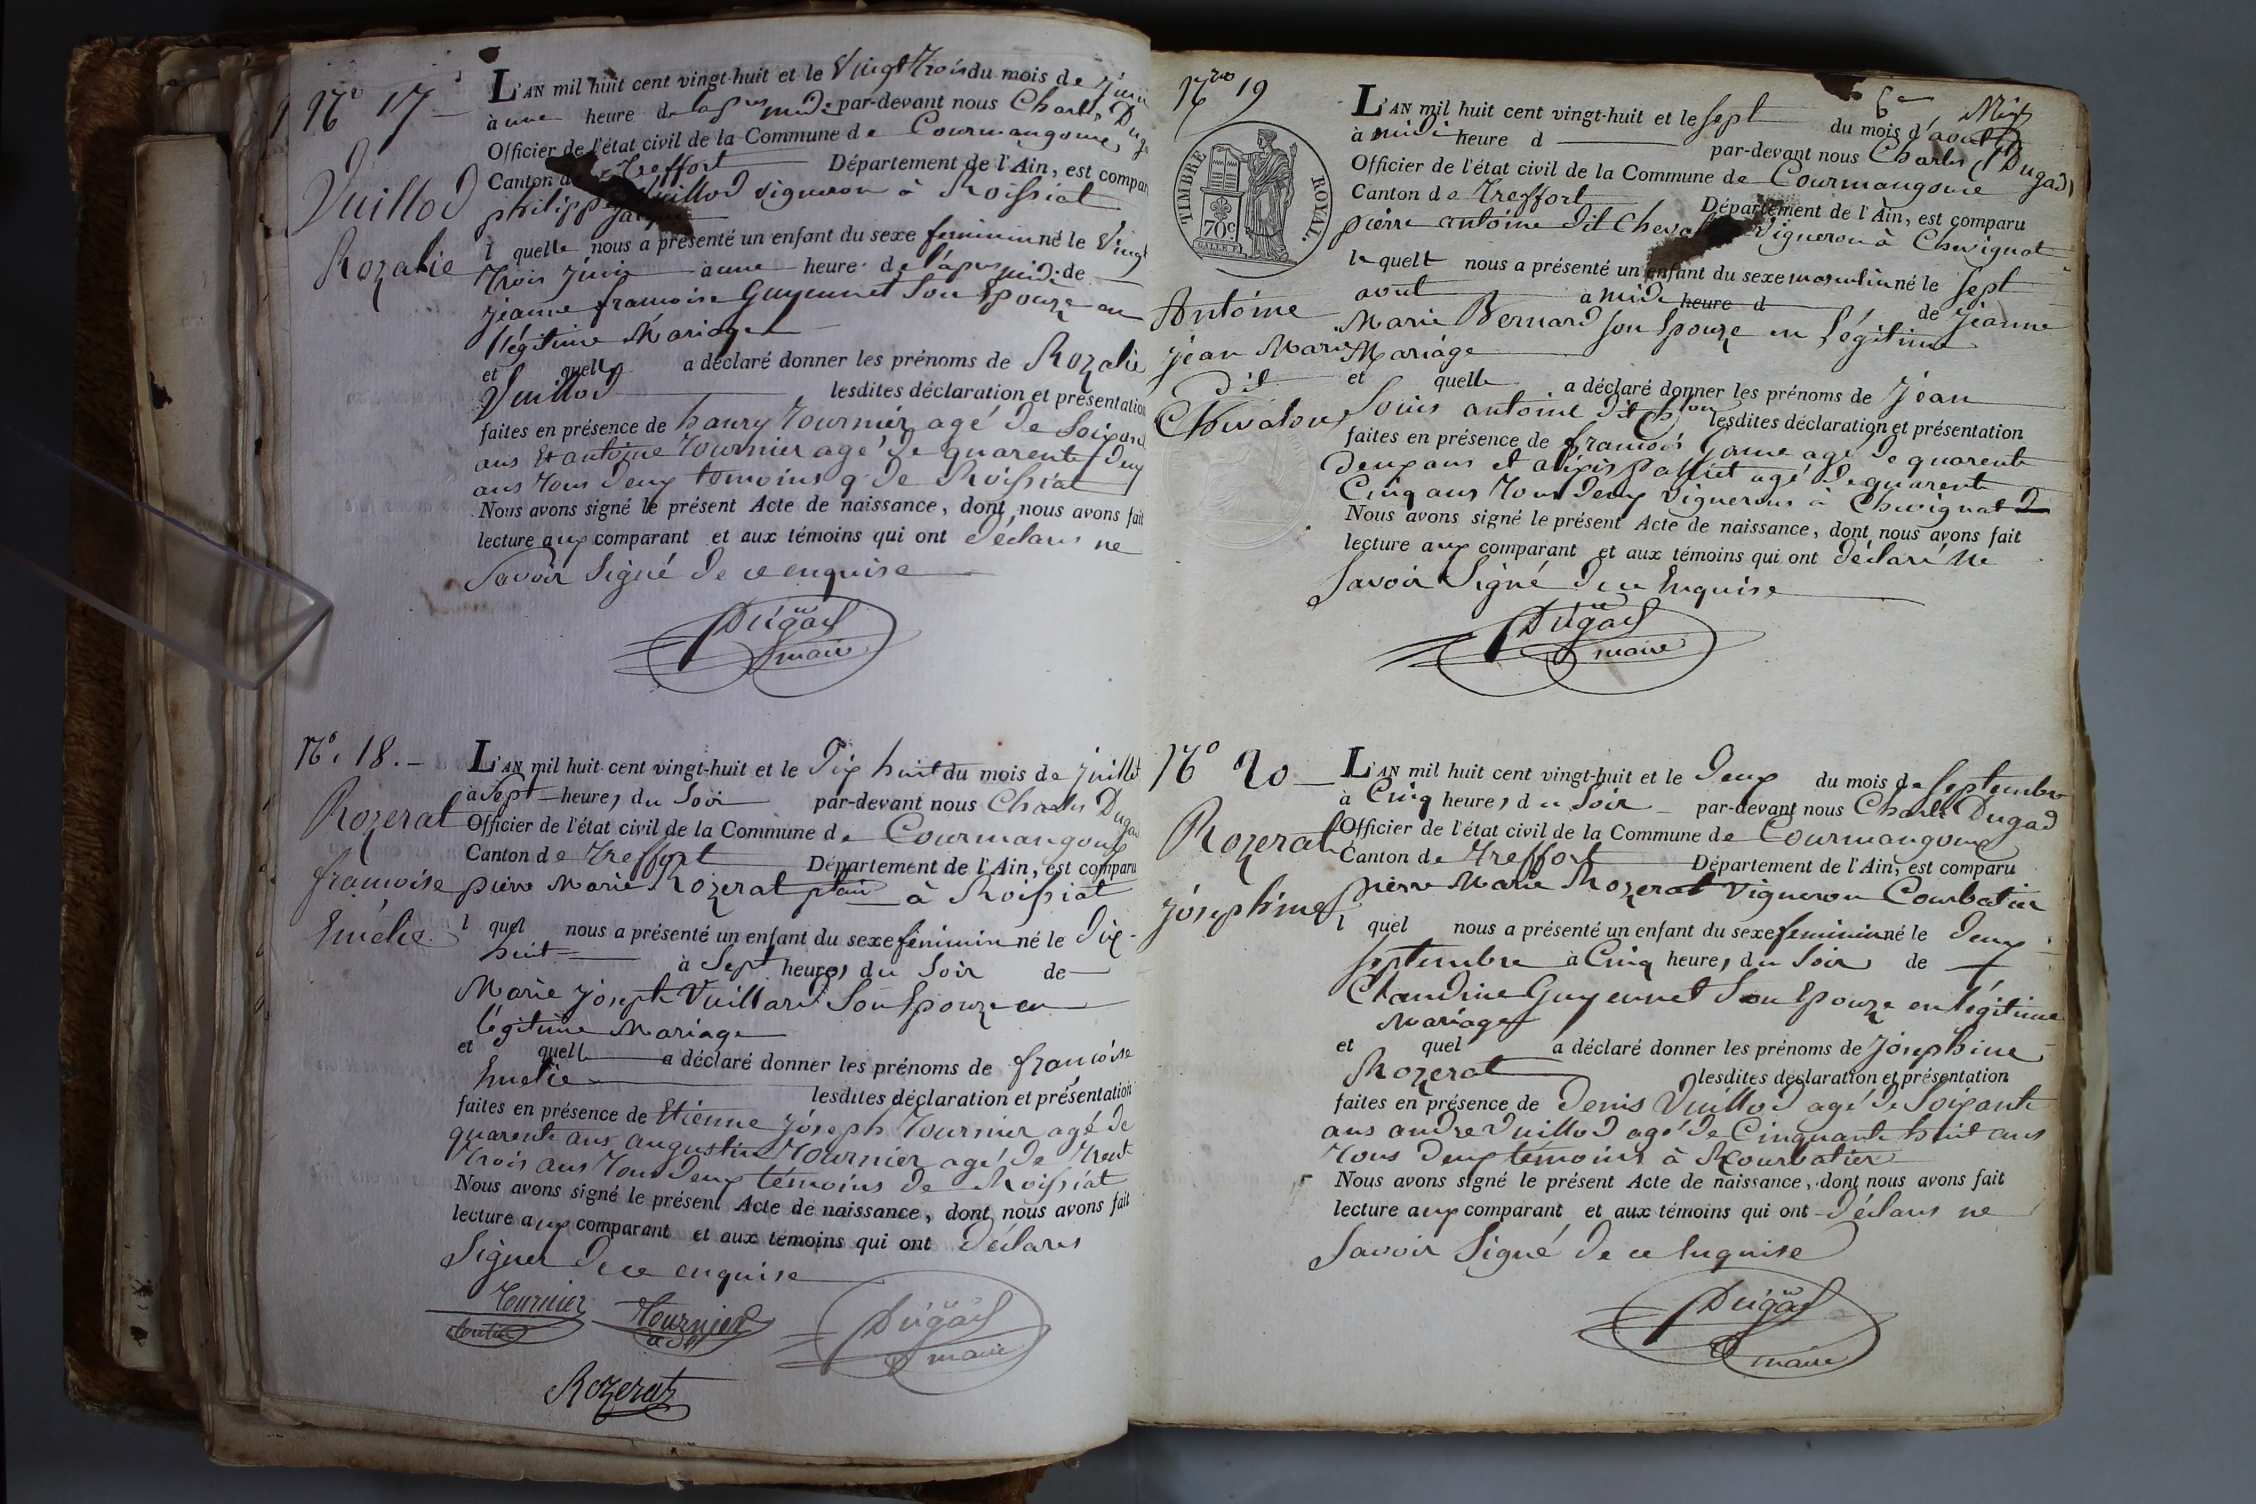 N° 17
Vuillod
Rozalie
L'AN mil huit cent vingt-huit et le Vingt Trois du mois de juin
à une heure de lapres midi par-devant nous Charles
Officier de l'état civil de la Commune de Courmangoux
Canton de Treffort Département de l'Ain, est compar
philippe Vuillod vigneron à Roissiat
l quelle nous a présenté un enfant du sexe feminin né le Vingt
Trois juin à une heure de l'apres midi de
jeanne francoise Guyennet Son Epouze en
légitime Mariage
et quelle a déclaré donner les prénoms de Rozalie
Vuillod lesdites déclaration et présentation
faites en présence de hanry Tournier agé de Soixante
ans Et antoine Tournier agé de quarente deux
ans Tous deux temoins de Roissiat
Nous avons signé le présent Acte de naissance, dont nous avons fait
lecture aux comparant et aux témoins qui ont déclaré ne
Savoir Signé de ce enquise
Dugad
maire
N°. 18.
Rozerat
francoise
Emélie
L'AN mil huit cent vingt-huit et le Dix huit du mois de juillet
à Sept heures du Soir par-devant nous Charles Dugad
Officier de l'état civil de la Commune de Courmangoux
Canton de Treffort Département de l'Ain, est comparu
pierre Marie Rozerat à Roissiat
l quel nous a présenté un enfant du sexe féminin né le Dix
huit à Sept heures du Soir de
Marie joseph Vuillard Son Epouze en
légitime Mariage
et quelle a déclaré donner les prénoms de francoise
Emelie lesdites déclaration et présentation
faites en présence de Etienne joseph Tournier agé de
quarente ans augustin Tournier agé de Trente
Trois ans Tous deux témoins de Roissiat
Nous avons signé le présent Acte de naissance, dont nous avons fait
lecture aux comparant et aux témoins qui ont déclarés
Signer de ce enquise
Tournier
Tournier
Dugad
maire
Rozerat
N° 19
TIMBRE ROYAL.
70c
Antoine
jean Marie
dit
Chevalon
L'AN mil huit cent vingt-huit et le sept du mois d'aout
à midi heure d par-devant nous Charles Dugad
Officier de l'état civil de la Commune de Courmangoux
Canton de Treffort Département de l'Ain, est comparu
pierre antoine dit Vigneron à Chevignat
le quell nous a présenté un enfant du sexe masculin né le sept
aout à midi heure d de jeanne
Marie Bernard Son Epouze en légitime
Mariage
et quelle a déclaré donner les prénoms de jean
Louis antoine dit lesdites déclaration et présentation
faites en présence de francois agé de quarente
deux ans et alexis agé de quarente
Cinq ans Tous deux vignerons à Chevignat
Nous avons signé le présent Acte de naissance, dont nous avons fait
lecture aux comparant et aux témoins qui ont déclaré ne
Savoir Signé de ce Enquise
Dugad
maire
N° 20
Rozerat
joséphine
L'AN mil huit cent vingt-huit et le Deux du mois de Septembre
à Cinq heures du Soir par-devant nous Charles Dugad
Officier de l'état civil de la Commune de Courmangoux
Canton de Treffort Département de l'Ain, est comparu
pierre Marie Rozerat vigneron Courbatier
l quel nous a présenté un enfant du sexe feminin né le Deux
septembre à Cinq heures du Soir de
Claudine Guyennet Son Epouze en légitime
Mariage
et quel a déclaré donner les prénoms de Joséphine
Rozerat lesdites déclaration et présentation
faites en présence de Denis Vuillod agé de Soixante
ans andre Vuillod agé de Cinquante huit ans
Tous deux témoins à Courbatier
Nous avons signé le présent Acte de naissance, dont nous avons fait
lecture aux comparant et aux témoins qui ont déclarés ne
Savoir Signé de ce Enquise
Dugad
maire